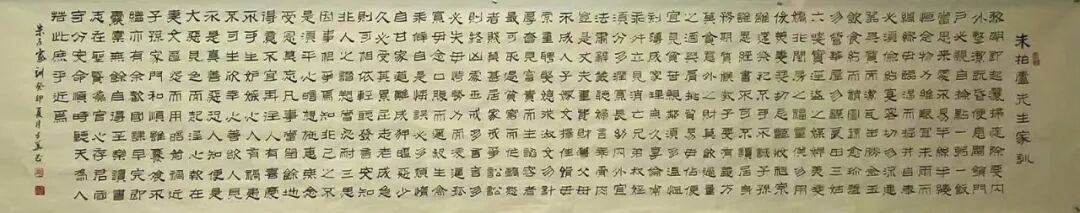 朱柏廬先生家訓
黎明即起灑掃庭除要內
外整潔既昏便息關鎖門
戶必親自檢點一粥一飯
當思來處不易半絲半縷
恒念物力維艱宜未雨而
綢繆毋臨渴而掘井自奉
必須儉約宴客切勿留連
器具質而潔瓦缶勝金玉
飲食約而精園蔬愈珍饈
勿營華屋勿謀良田三姑
六婆實淫盜之媒婢美妾
嬌非閨房之福奴僕勿用
俊美妻妾切忌豔妝祖宗
雖遠祭祀不可不誠子孫
雖愚經書不可不讀居身
務期質樸教子要有義方
莫貪意外之財莫飲過量
之酒與肩挑貿易毋佔便
宜見貧苦親鄰須加溫恤
刻薄成家理無久享倫常
乖舛立見消亡兄弟叔姪
須分多潤寡長幼內外宜
法肅辭嚴聽婦言乖骨肉
豈是丈夫重資財薄父母
不成人子嫁女擇佳婿毋
索重聘娶媳求淑女勿計
厚奩見富貴而生諂容者
最可恥遇貧窮而作驕態
者賤莫甚居家戒爭訟訟
則終凶處世戒多言言多
必失勿恃勢力而凌逼孤
寡毋貪口腹而恣殺生禽
乖僻自是悔誤必多頹惰
自甘家道難成狎暱惡少
久必受其累屈志老成急
則可相依輕聽發言安知
非人之譖愬當忍耐三思
因事相爭焉知非我之不
是須平心暗想施惠無念
受恩莫忘凡事當留餘地
得意不宜再往人有喜慶
不可生妒忌心人有禍患
不可生欣幸心善欲人見
不是真善惡恐人知便是
大惡見色而起淫心報在
妻女匿怨而用暗箭禍延
子孫家門和順雖饔飧不
繼亦有餘歡國課早完即
囊橐無餘自得至樂讀書
志在聖賢為官心存君國
守分安命順時聽天為人
若此庶乎近焉
朱子家訓癸卯夏月